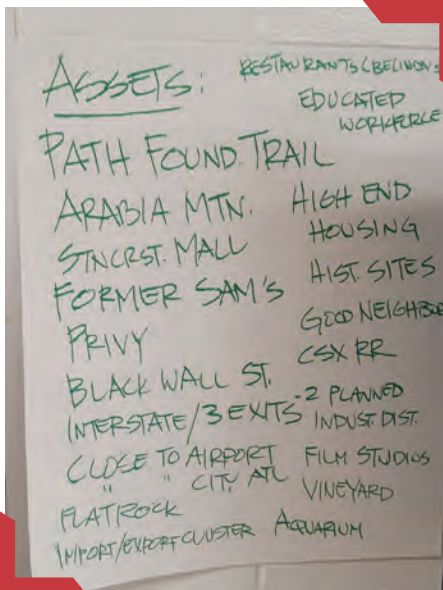 ASSETS:
PATH FOUND. TRAIL
ARABIA MTN.
STNCRST. MALL
FORMER SAM'S
PRIVY
BLACK WALL ST.
INTERSTATE/3 EXITS
CLOSE TO AIRPORT
" " CITY ATL
FLATROCK
IMPORT/EXPORT CLUSTER
RESTAURANTS (
EDUCATED
WORKFORCE
HIGH END
HOUSING
HIST. SITES
GOOD NEIGHBOR
CSX RR
-2 PLANNED
INDUST. DIST.
FILM STUDIOS
VINEYARD
AQUARIUM